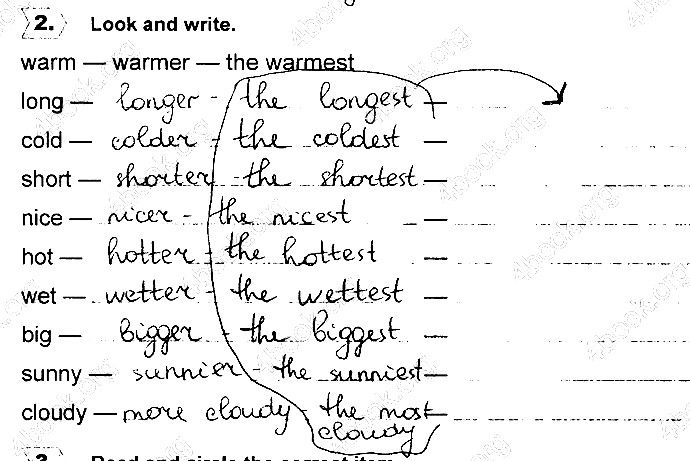 2. Look and write.
warm — warmer — the warmest
long — longer - the longest —
cold — colder - the coldest —
short — shorter - the shortest —
nice — nicer - the nicest —
hot — hotter - the hottest —
wet — wetter - the wettest —
big — bigger - the biggest —
sunny — sunnier - the sunniest —
cloudy — more cloudy - the most —
cloudy
3. Read and circle the correct item.
4book.org
4book.org
4book.org
4book.org
4book.org
4book.org
4book.org